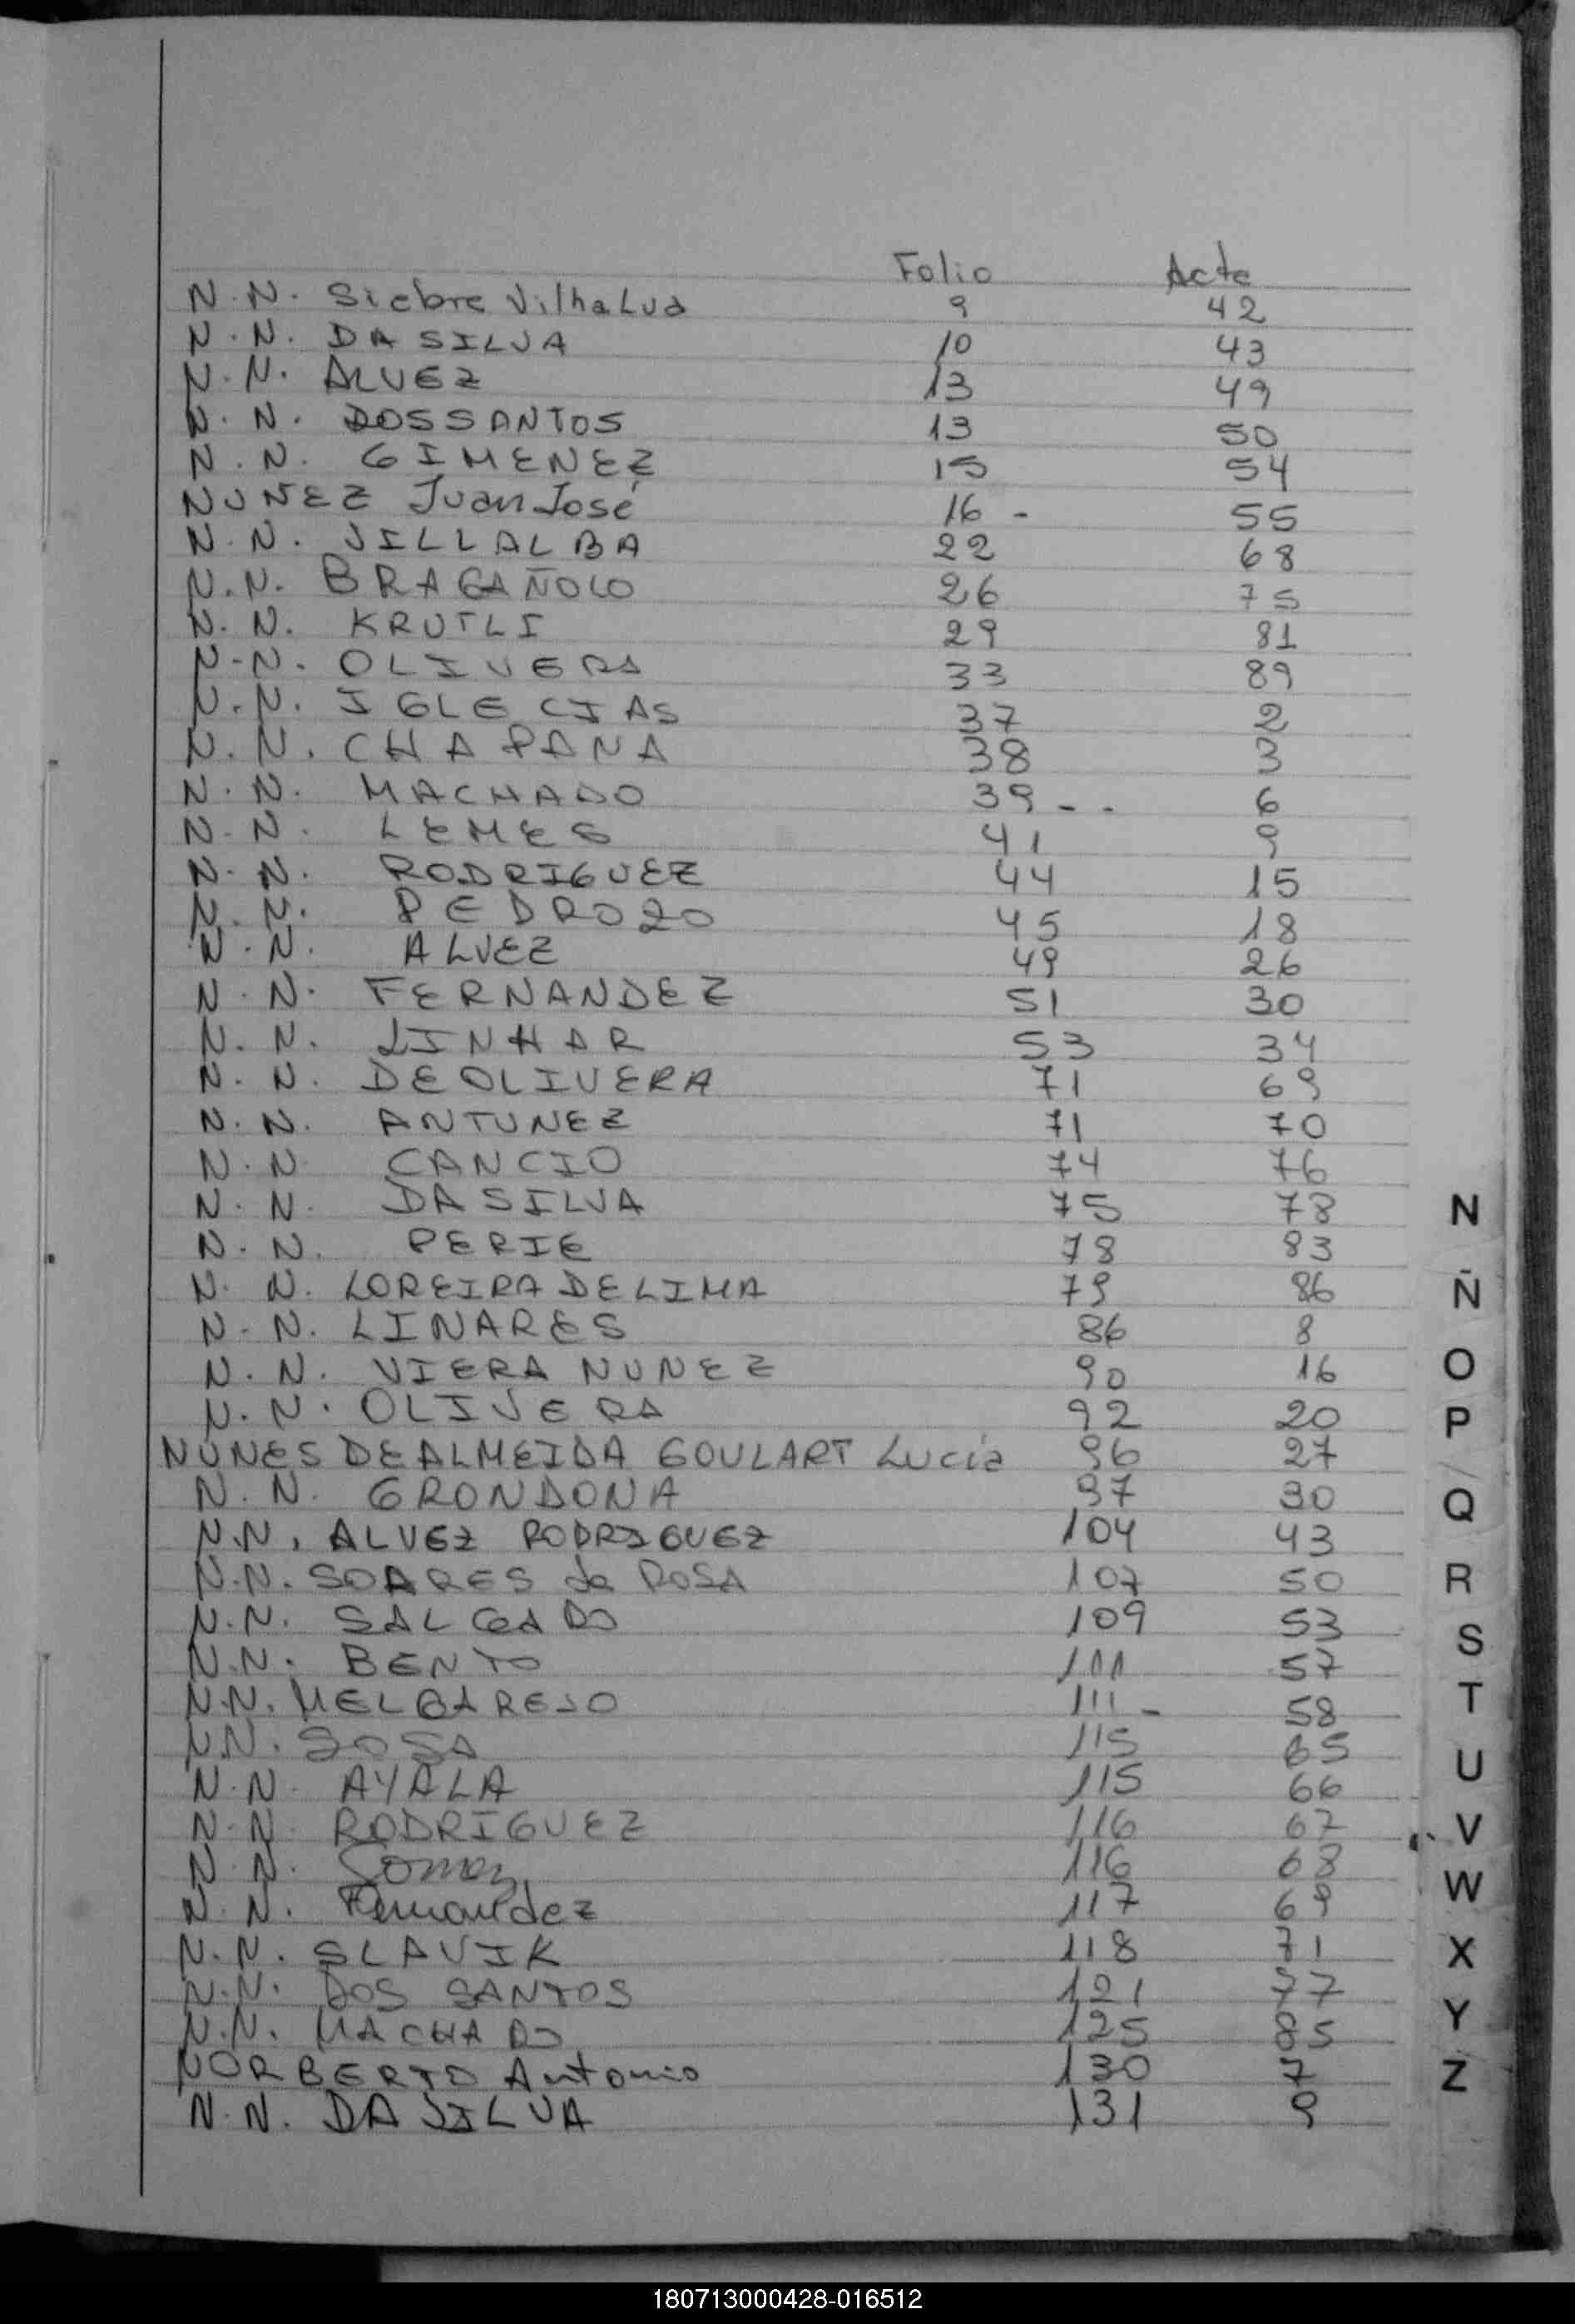 Folio Acta
N.N. Siebre VilhaLva 9 42
N.N. DA SILVA 10 43
N.N. ALVEZ 13 49
N.N. DOSSANTOS 13 50
N.N. GIMENEZ 15 54
NUÑEZ Juan José 16 - 55
N.N. VILLALBA 22 68
N.N. BRAGAÑOLO 26 75
N.N. KRUTLI 29 81
N-N. OLIVERA 33 89
N.N. IGLECIAS 37 2
N.N. CHAPANA 38 3
N.N. MACHADO 39 - - 6
N.N. LEMES 41 9
N.N. RODRIGUEZ 44 15
N.N. PEDROZO 45 18
N.N. ALVEZ 49 26
N.N. FERNANDEZ 51 30
N.N. LINHAR 53 34
N.N. DEOLIVERA 71 69
N.N. ANTUNEZ 71 70
N.N CANCIO 74 76
N.N. DASILVA 75 78
N.N. PERIE 78 83
N. N. LOREIRA DELIMA 79 86
N-N. LINARES 86 8
N.N. VIERA NUNEZ 90 16
N.N. OLIVERA 92 20
NUNES DEALMEIDA GOULART Lucia 96 27
N.N. GRONDONA 97 30
N.N. ALVEZ RODRIGUEZ 104 43
N.N. SOARES da ROSA 107 50
N.N. SALGADO 109 53
N.N. BENTO 111 57
N.N. MELGAREJO 111 - 58
N.N. SOSA 115 65
N.N. AYALA 115 66
N.N. RODRIGUEZ 116 67
N.N. Gomez 116 68
N.N. Fernandez 117 69
N.N. SLAVIK 118 71
N.N. DOS SANTOS 121 77
N.N. MACHADO 125 85
NORBERTO Antonio 130 7
N.N. DA SILVA 131 9
N
Ñ
O
P
Q
R
S
T
U
V
W
X
Y
Z
180713000428-016512